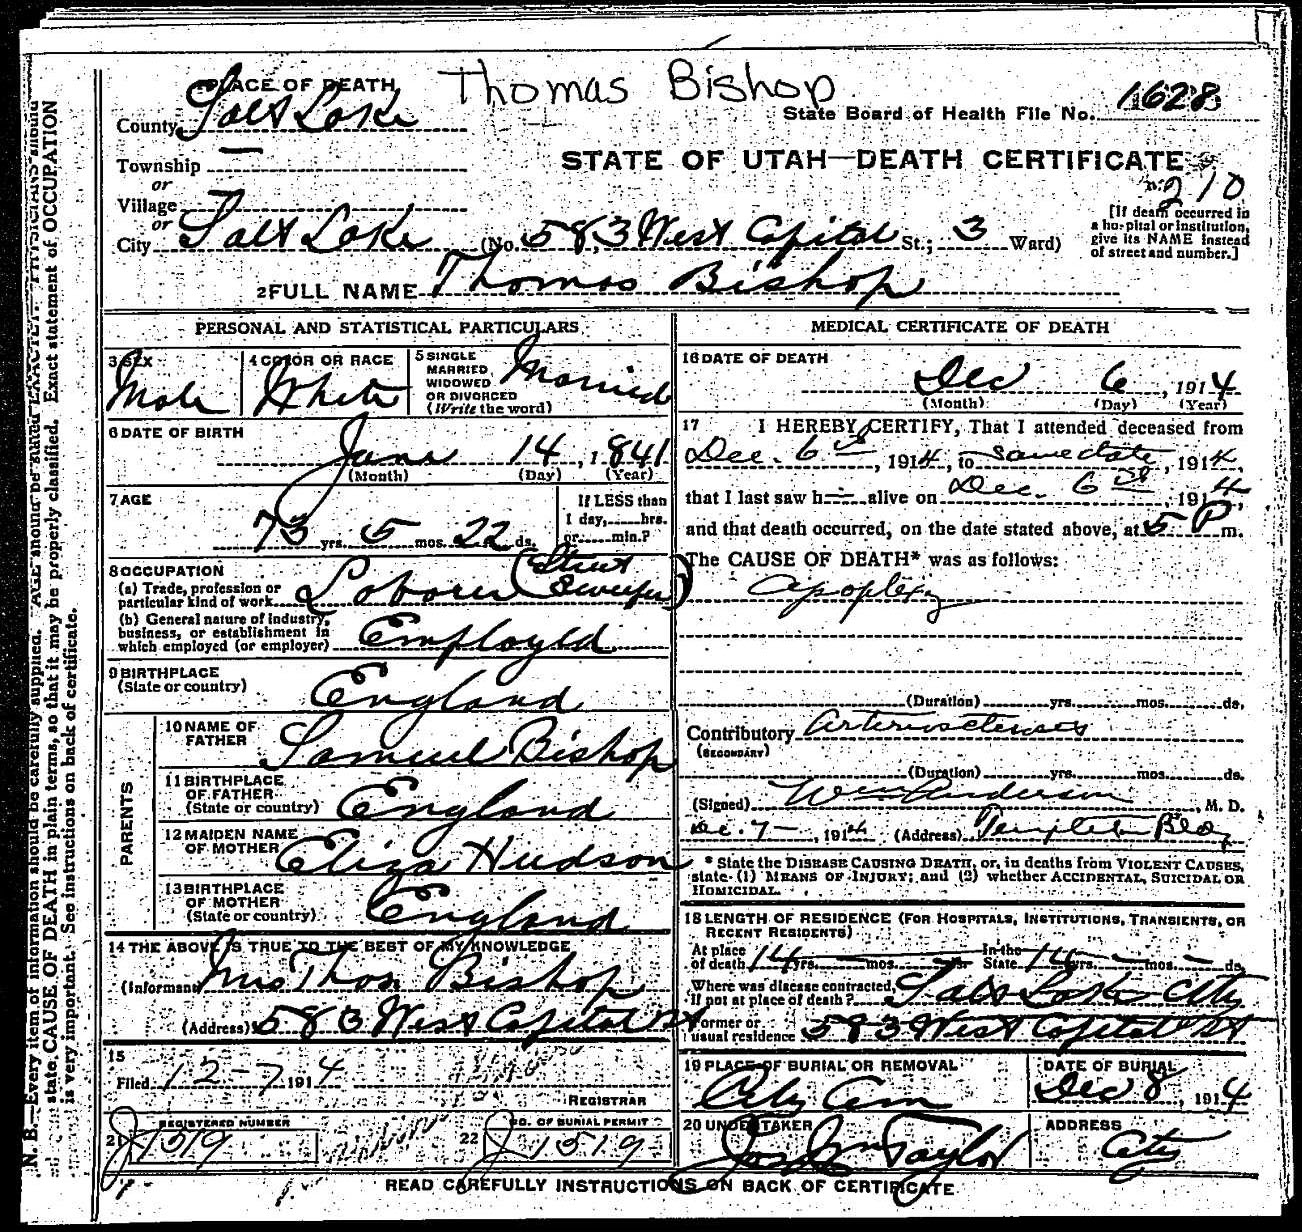 Thomas Bishop
1 PLACE OF DEATH
County Salt Lake
State Board of Health File No. 1628
STATE OF UTAH—DEATH CERTIFICATE
Township —
or
Village
or
210
City Salt Lake (No. 583 West Capitol St.; 3 Ward)
[If death occurred in a hospital or institution, give its NAME instead of street and number.]
2 FULL NAME Thomas Bishop
PERSONAL AND STATISTICAL PARTICULARS
3 SEX Male
4 COLOR OR RACE White
5 SINGLE MARRIED, WIDOWED OR DIVORCED (Write the word) Married
6 DATE OF BIRTH
June 14, 1841
(Month) (Day) (Year)
7 AGE
73 yrs. 5 mos. 22 ds.
If LESS than 1 day, hrs. or min.?
8 OCCUPATION
(a) Trade, profession or particular kind of work Laborer (Street Sweeper)
(b) General nature of industry, business, or establishment in which employed (or employer) Employed
9 BIRTHPLACE
(State or country) England
PARENTS
10 NAME OF FATHER Samuel Bishop
11 BIRTHPLACE OF FATHER (State or country) England
12 MAIDEN NAME OF MOTHER Eliza Hudson
13 BIRTHPLACE OF MOTHER (State or country) England
14 THE ABOVE IS TRUE TO THE BEST OF MY KNOWLEDGE
(Informant) Mrs Thos Bishop
(Address) 583 West Capitol St
15
Filed 12-7 1914
REGISTRAR
REGISTERED NUMBER
21 J1519
NO. OF BURIAL PERMIT
22 J1519
MEDICAL CERTIFICATE OF DEATH
16 DATE OF DEATH
Dec 6, 1914
(Month) (Day) (Year)
17 I HEREBY CERTIFY, That I attended deceased from
Dec. 6, 1914, to same date, 1914,
that I last saw h alive on Dec. 6, 1914,
and that death occurred, on the date stated above, at 5 P m.
The CAUSE OF DEATH* was as follows:
apoplexy
(Duration) yrs. mos. ds.
Contributory arteriosclerosis
(SECONDARY)
(Duration) yrs. mos. ds.
(Signed) Wm Anderson, M. D.
Dec. 7, 1914 (Address) Templeton Bldg
* State the DISEASE CAUSING DEATH, or, in deaths from VIOLENT CAUSES, state (1) MEANS OF INJURY; and (2) whether ACCIDENTAL, SUICIDAL OR HOMICIDAL.
18 LENGTH OF RESIDENCE (FOR HOSPITALS, INSTITUTIONS, TRANSIENTS, OR RECENT RESIDENTS)
At place of death 14 yrs. — mos. — ds. In the State 14 yrs. — mos. — ds.
Where was disease contracted, if not at place of death? Salt Lake City
Former or usual residence 583 West Capitol St
19 PLACE OF BURIAL OR REMOVAL City Cem
DATE OF BURIAL Dec 8, 1914
20 UNDERTAKER Jos Wm Taylor
ADDRESS City
READ CAREFULLY INSTRUCTIONS ON BACK OF CERTIFICATE
N. B.—Every item of information should be carefully supplied. AGE should be stated EXACTLY. PHYSICIANS should
state CAUSE OF DEATH in plain terms, so that it may be properly classified. Exact statement of OCCUPATION
is very important. See instructions on back of certificate.